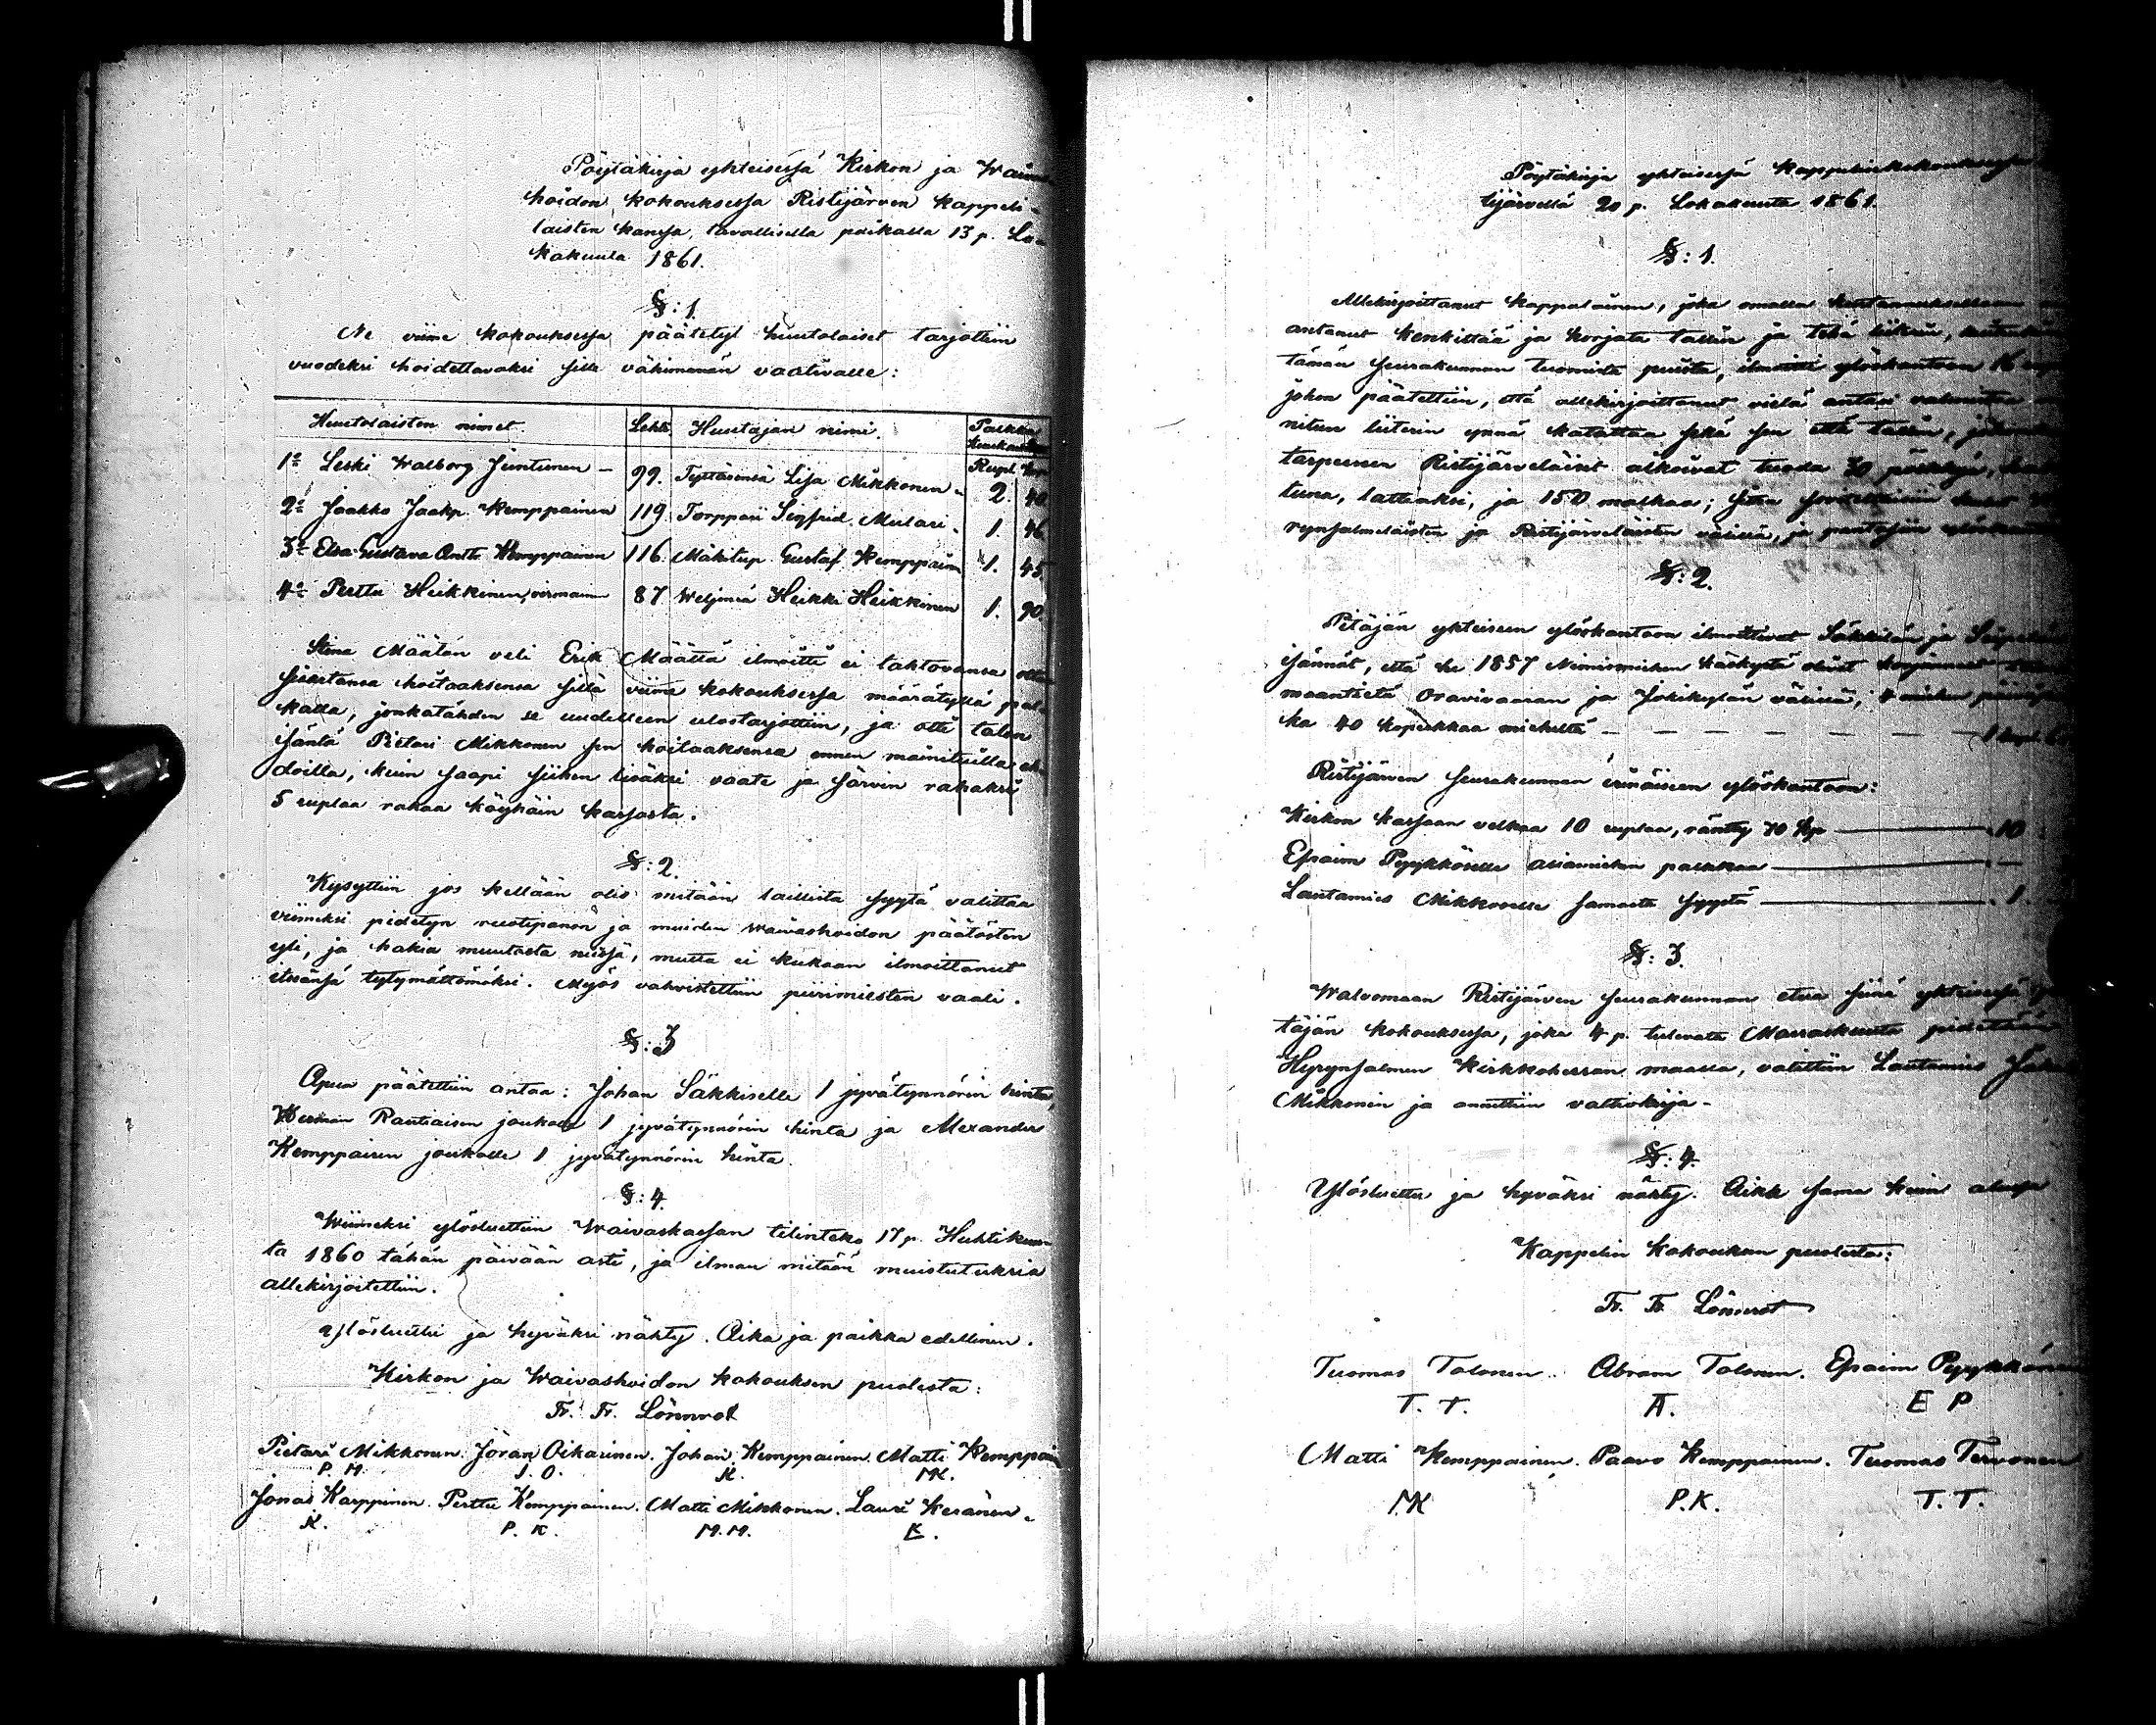 Pöytäkirja yhteisessä Kirkon ja
hoidon kokouksessa Ristijärven kappeli-
laisten kanssa, tavallisella paikalla 13 p. Lo-
kakuuta 1861.
§: 1.
Ne viime kokouksessa päätetyt huutolaiset tarjottiin
vuodeksi hoidettavaksi sille vähimmän vaativalle:
Huutolaisten nimet. Lehti. Huutajan nimi. Palkka
Rupl. Kop.
1:o Leski Walborg Juntunen – 99. Tyttärensä Lisa Mikkonen 2. 40.
2:o Jaakko Jaakp. Kemppainen 119 Torppari Sigfrid Mulari. 1. 46
3:o Elsa Gustava Antt. Kemppainen 116. Mäkitup. Gustaf Kemppainen 1. 45.
4:o Perttu Heikkinen, 87 Weljensä Heikki Heikkinen 1. 90.
Stina Määtän veli Erik Määttä ilmoitti ei tahtovansa
sisartansa hoitaaksensa sillä viime kokouksessa määrätyllä pal-
kalla, jonkatähden se uudelleen ulostarjottiin, ja otti talon
isäntä Pietari Mikkonen sen hoitaaksensa ennen mainituilla eh-
doilla, kuin saapi siihen lisäksi vaate ja särvin rahaksi
5 ruplaa rahaa köyhäin kassasta.
§: 2.
Kysyttiin jos kellään olis mitään laillista syytä valittaa
viimeksi pidetyn ruotipanon ja muiden waivashoidon päätösten
yli, ja hakea muutosta niissä, mutta ei kukaan ilmoittanut
itseänsä tytymättömäksi. Myös vahvistettiin piirimiesten vaali.
§: 3
Apua päätettiin antaa: Johan Säkkiselle 1 jyvätynnörin hinta,
Herman Rautiaisen joukolle 1 jyvätynnörin hinta ja Alexander
Kemppaisen joukolle 1 jyvätynnörin hinta.
§: 4.
Wiimeksi ylösluettiin Waivaskassan tilinteko 17 p. Huhtikuu-
ta 1860 tähän päivään asti, ja ilman mitään muistutuksia
allekirjoitettiin.
Ylösluettu ja hyväksi nähty. Aika ja paikka edellinen.
Kirkon ja Waivashoidon kokouksen puolesta:
Fr. Fr. Lönnrot
Pietari Mikkonen. Jöran Oikarinen. Johan Kemppainen. Matti Kemppai
P. M. J. O. K. MK.
Jonas Karppinen. Perttu Kemppainen. Matti Mikkonen. Lauri Keränen.
K. P. K. M. M. K.
Pöytäkirja yhteisessä
tijärvellä 20 p. Lokakuuta 1861.
§: 1.
Allekirjoittanut kappalainen, joka omalla
antanut kenkittää ja korjata tallin ja tehä
tämän seurakunnan tuomista puista, ilmoitti ylöskantoon 16
johon päätettiin, että allekirjoittanut vielä antasi
nitun liiterin ynnä katattaa sekä sen että tallin,
tarpeeseen Ristijärveläiset aikoivat tuoda 30
tuna, lattiaksi, ja 150 malkaa;
rynsalmelaisten ja Ristijärveläisten välissä, ja
§: 2.
Pitäjän yhteiseen ylöskantoon ilmoittivat Säkkilän ja
isännät, että he 1857 Nimismiehen käskystä olivat korjanneet
maantietä Oravivaaran ja Jokikylän välissä, 4 miehen
ka 40 kopeikkaa mieheltä – – – – – – 1 rupl.
Ristijärven seurakunnan erinäiseen ylöskantoon:
Kirkon kassaan velkaa 10 ruplaa, ränty 70 kop — 10
Efraim Pyykköselle asiamiehen palkkaa —
Lautamies Mikkoselle samasta syystä — 1.
§: 3.
Walvomaan Ristijärven seurakunnan etua siinä yhteisessä
täjän kokouksessa, joka 4 p. tulevata Marraskuuta pidetään
Hyrynsalmen Kirkkoherran maalla, valittiin Lautamies
Mikkonen ja annettiin valtiokirja –
§: 4.
Ylösluettu ja hyväksi nähty. Aika sama kuin alussa
Kappelin kokouksen puolesta:
Fr. Fr. Lönnrot
Tuomas Tolonen. Abram Tolonen. Efraim Pyykkönen
T. T. A. E P
Matti Kemppainen. Paavo Kemppainen. Tuomas Tervonen
MK P. K. T. T.